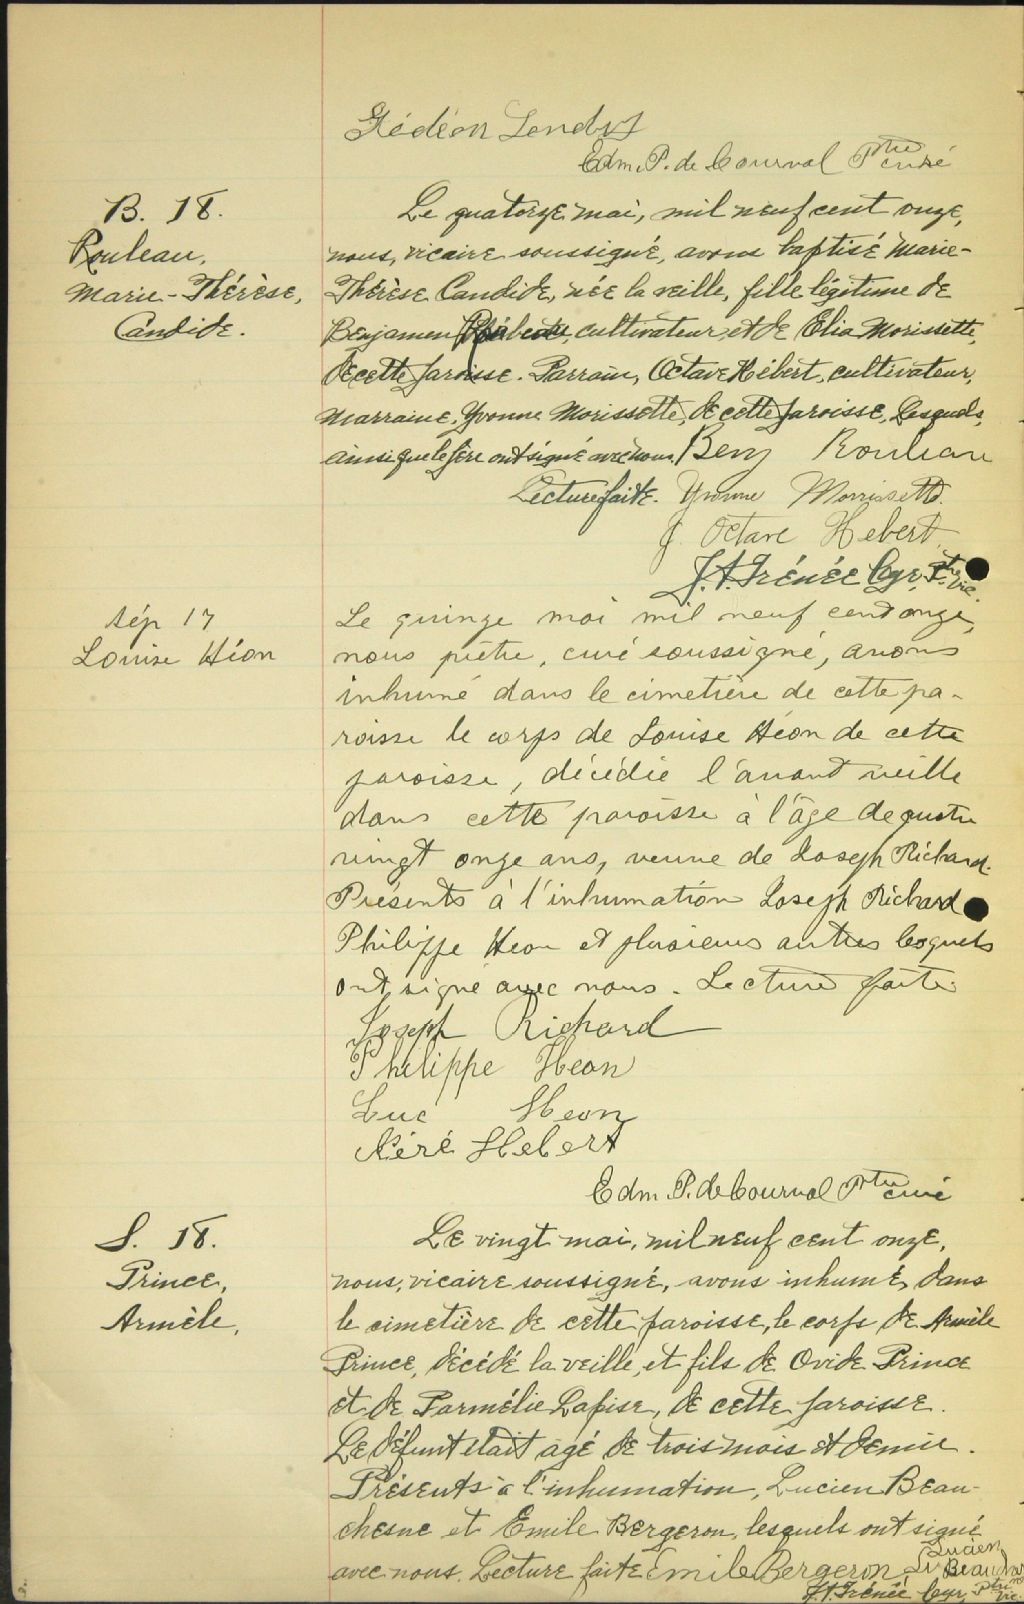 Gédéon Landry
Edm. P. de Courval Ptre curé
B. 18.
Rouleau,
Marie-Thérèse,
Candide.
Le quatorze mai, mil neuf cent onze,
nous, vicaire soussigné, avons baptisé Marie-
Thérèse Candide, née la veille, fille légitime de
Benjamen cultivateur, et de Elia Morissette,
de cette paroisse. Parrain, Octave Hébert, cultivateur,
marraine, Yvonne Morissette, de cette paroisse, lesquels,
ainsi que le père ont signé avec nous. Benj Rouleau
Lecture faite. Yvonne Morrissette.
J. Octave Hebert
J. A. Irénée Cyr, Ptre vic.
Sép 17
Louise Héon
Le quinze mai mil neuf cent onze,
nous prêtre, curé soussigné, avons
inhumé dans le cimetière de cette pa-
roisse le corps de Louise Héon de cette
paroisse, décédée l'avant veille
dans cette paroisse à l'âge de quatre
vingt onze ans, veuve de Joseph Richard.
Présents à l'inhumation Joseph Richard
Philippe Heon et plusieurs autres lesquels
ont signé avec nous. Lecture faite.
Joseph Richard
Philippe Heon
Luc Heon
Néré Hebert
Edm. P. de Courval Ptre curé
S. 18.
Prince,
Armèle,
Le vingt mai, mil neuf cent onze,
nous, vicaire soussigné, avons inhumé, dans
le cimetière de cette paroisse, le corps de Armèle
Prince, décédé la veille, et fils de Ovide Prince
et de Parmélie Lapise, de cette paroisse.
Le défunt était âgé de trois mois et demie.
Présents à l'inhumation, Lucien Beau-
chesne et Emile Bergeron, lesquels ont signé
avec nous. Lecture faite Emile Bergeron, Lucien
J. A. Irénée Cyr, Ptre vic.